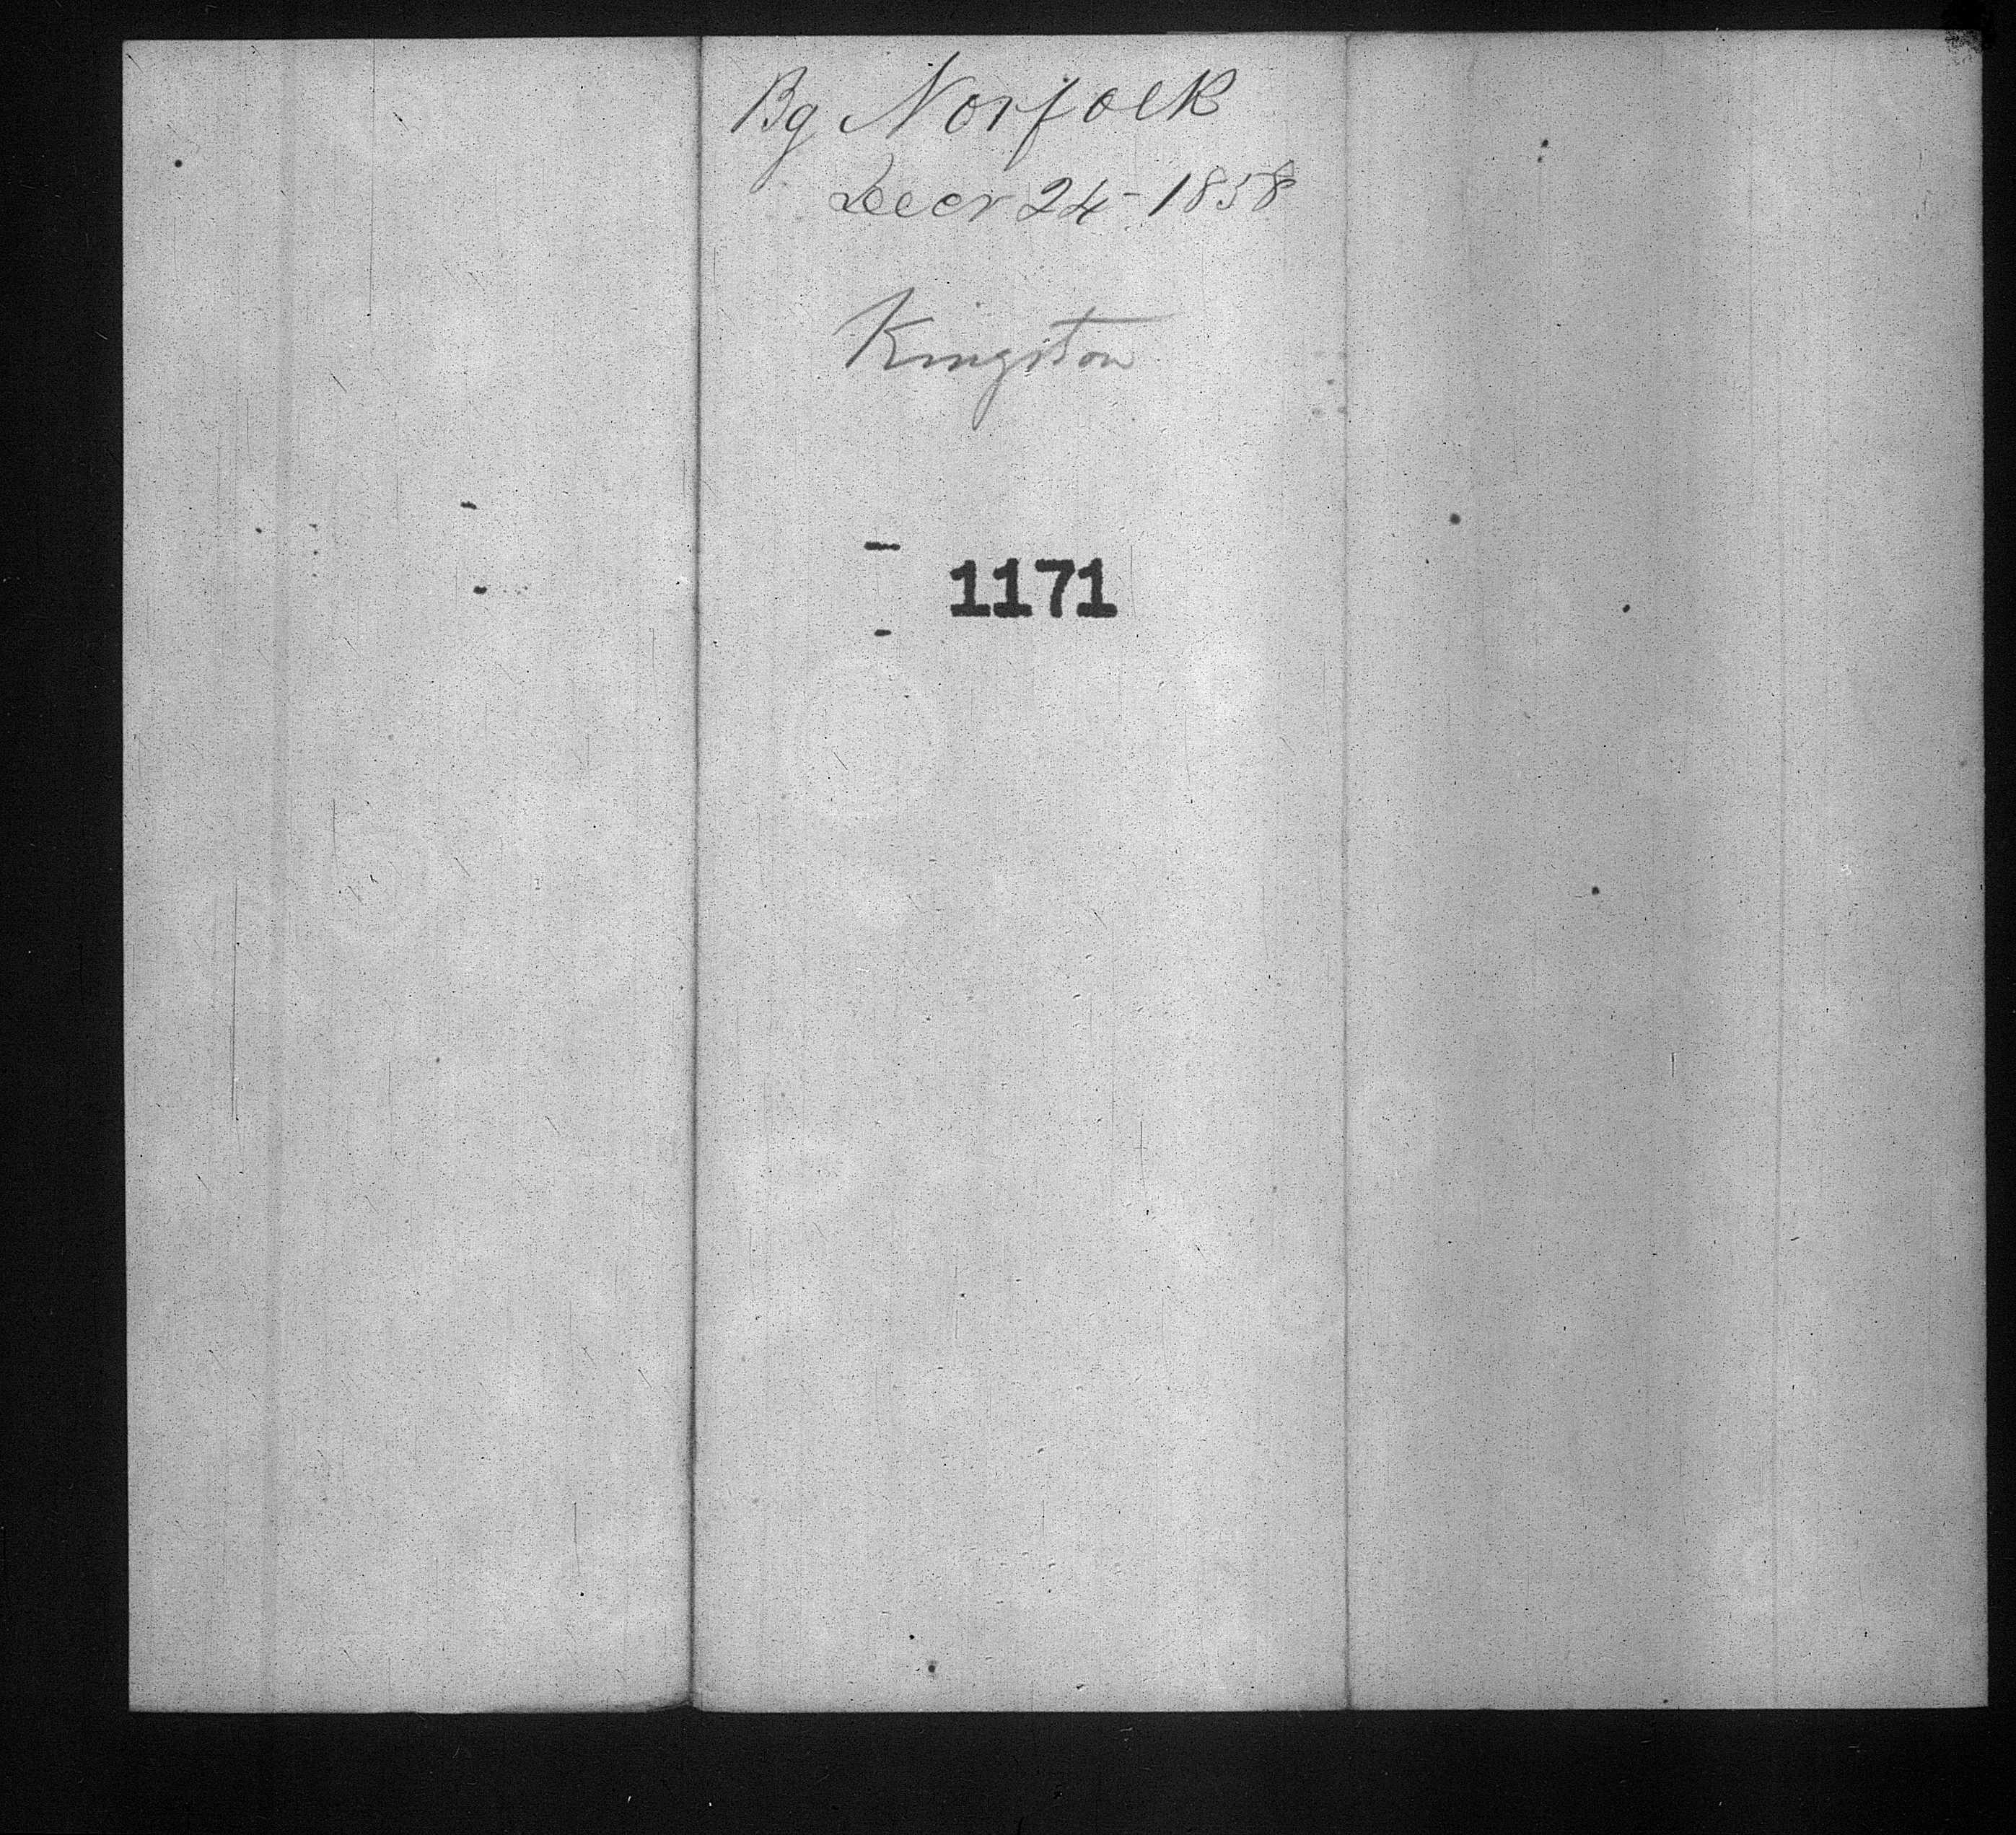 Bg Norfolk
Decr 24 - 1858
Kingston
1171